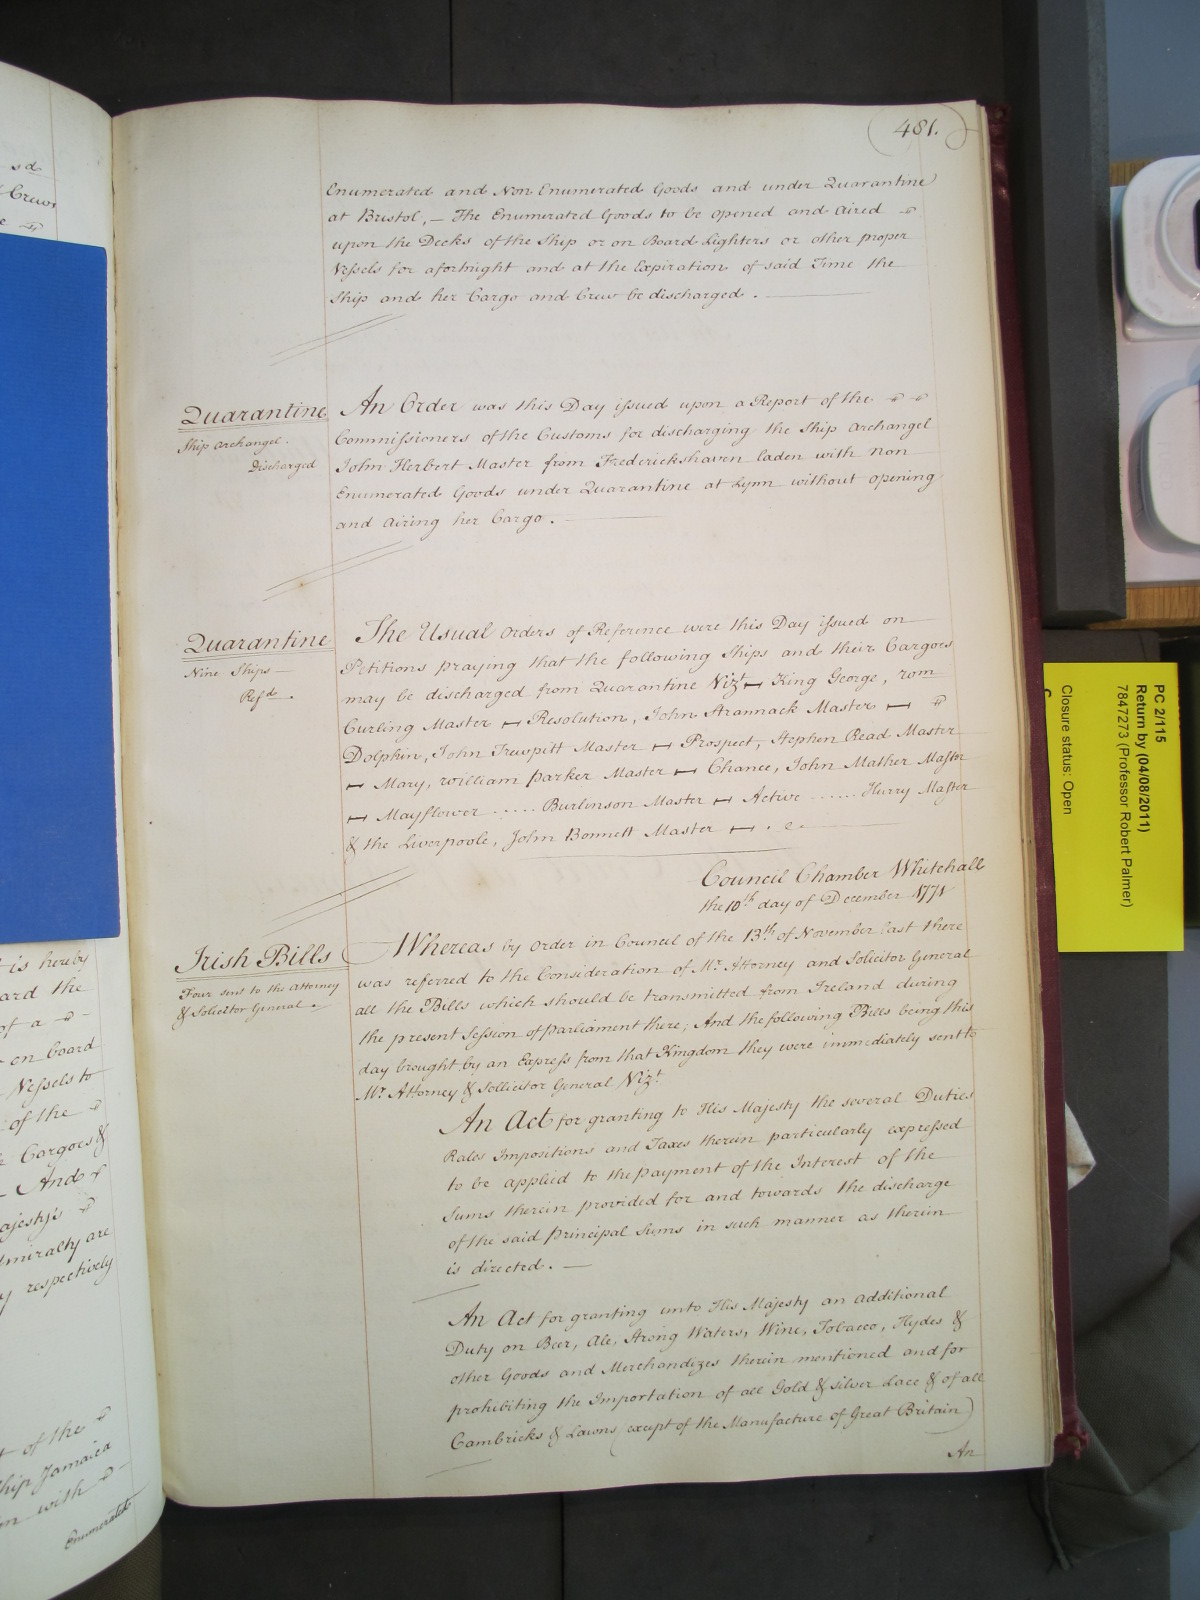 481.
Enumerated and Non Enumerated Goods and under Quarantine
at Bristol, — The Enumerated Goods to be opened and Aired
upon the Decks of the Ship or on Board Lighters or other proper
Vessels for a fortnight and at the Expiration of said Time the
Ship and her Cargo and Crew be discharged.
Quarantine
Ship Archangel.
Discharged
An Order was this Day issued upon a Report of the
Commissioners of the Customs for discharging the Ship Archangel
John Herbert Master from Frederickshaven laden with non
Enumerated Goods under Quarantine at Lynn without opening
and Airing her Cargo.
Quarantine
Nine Ships
Refd.
The Usual Orders of Reference were this Day issued on
Petitions praying that the following Ships and their Cargoes
may be discharged from Quarantine Vizt King George, rom
Curling Master Resolution, John Strannack Master
Dolphin, John Trewpitt Master Prospect, Stephen Read Master
Mary, William Parker Master Chance, John Mather Master
Mayflower ..... Burlinson Master Active ...... Hurry Master
& the Liverpoole, John Bonnett Master
Council Chamber Whitehall
the 10th day of December 1771
Irish Bills
Four sent to the Attorney
& Solicitor General.
Whereas by Order in Council of the 13th of November last there
was referred to the Consideration of Mr. Attorney and Solicitor General
all the Bills which should be transmitted from Ireland during
the present Session of Parliament there; And the following Bills being this
day brought by an Express from that Kingdom they were immediately sent to
Mr. Attorney & Sollicitor General Vizt
An Act for granting to His Majesty the several Duties
Rates Impositions and Taxes therein particularly expressed
to be applied to the payment of the Interest of the
Sums therein provided for and towards the discharge
of the said Principal Sums in such manner as therein
is directed. —
An Act for granting unto His Majesty an additional
Duty on Beer, Ale, Strong Waters, Wine, Tobacco, Hydes &
other Goods and Merchandizes therein mentioned and for
prohibiting the Importation of all Gold & silver Lace & of all
Cambricks & Lawns (except of the Manufacture of Great Britain)
An
is hereby
ard the
of a
on board
Vessels to
of the
Cargoes &
And
ajesty's
dmiralty are
y respectively
of the
hip Jamaica
with
Enumerated
PC 2/115
Return by (04/08/2011)
7847273 (Professor Robert Palmer)
Closure status: Open